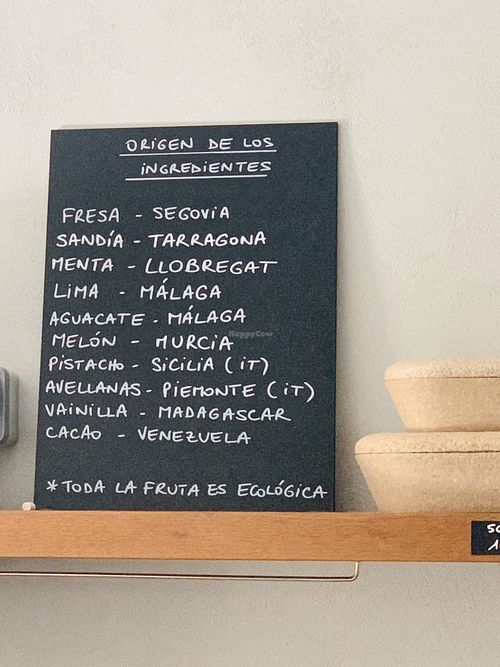 ORIGEN DE LOS
INGREDIENTES
FRESA - SEGOVIA
SANDÍA - TARRAGONA
MENTA - LLOBREGAT
LIMA - MÁLAGA
AGUACATE - MÁLAGA
MELÓN - MURCIA
PISTACHO - SICILIA (IT)
AVELLANAS - PIEMONTE (IT)
VAINILLA - MADAGASCAR
CACAO - VENEZUELA
* TODA LA FRUTA ES ECOLÓGICA
HappyCow